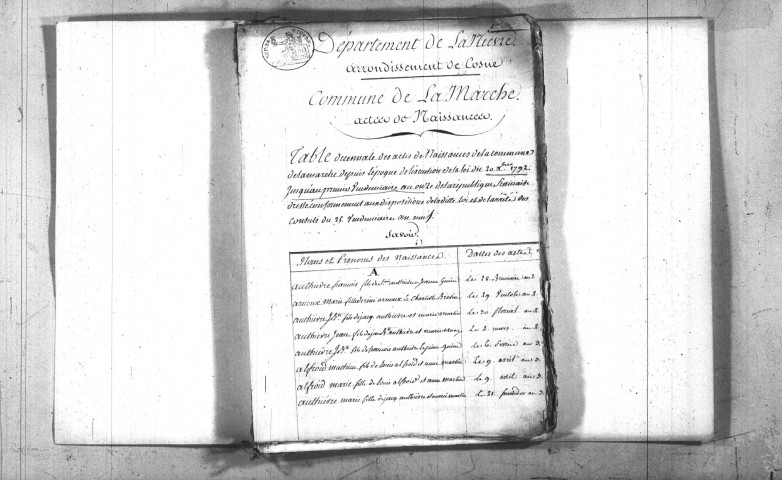 Département de La Nièvre.
arrondissement de Cosne
Commune de La Marche.
actes de Naissances.
Table decennale des actes de Naissances de la commune
de lamarche depuis l'époque de l'execution de la loi du 20 Xbre 1792
Jusqu'au premier Vendemiaire an onze de la republique francaise
dressé conformement aux dispositions de la ditte loi et de l'arrêté des
Consuls du 25 Vendemiaire an neuf.
Savoir
Noms et Prenoms des Naissances. Dattes des actes.
A
françois fils de Le 28. Brumaire an 2.
arnoux Marie fille de arnoux & Charlotte Le 29 Ventose an 2.
authievre fils de jacq authievre et marie Le 20 floreal an 2.
authievre Jean fils de authievre et marie Le 2. mars an 2.
authievre fils de francois authievre Le 6. an 3.
alfroid mathieu fils de louis alfroid et anne martin Le 9 avril an 3.
alfroid marie fille de louis alfroid et anne martin Le 9 avril an 3.
authievre marie fille de jacq authievre et marie Le 21. an 3.